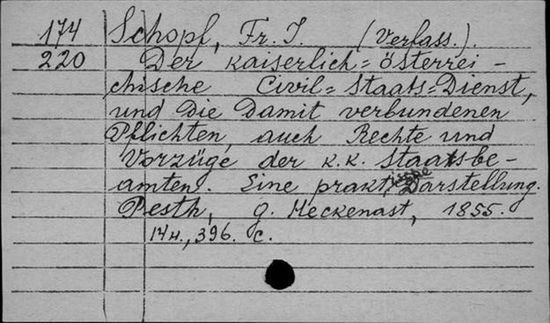 174 Schopf, Fr. J. (Verfass.).
220 Der kaiserlich=österrei-
chische Civil=Staats=Dienst,
und die damit verbundenen
Pflichten, auch Rechte und
Vorzüge der K.K. Staatsbe-
amten. Eine praktische Darstellung.
Pesth, G. Heckenast, 1855.
14н., 396. С.